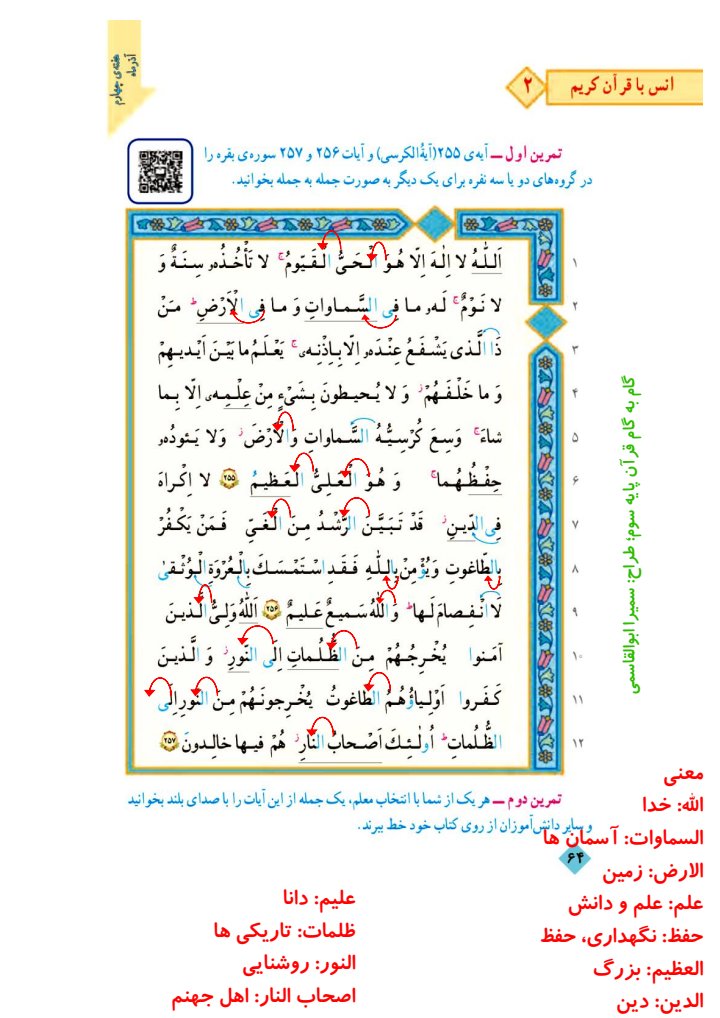 هفته‌ی چهارم
آذرماه
انس با قرآن کریم ۲
تمرین اول ــ آیه‌ی ۲۵۵(آیةُالکرسی) و آیات ۲۵۶ و ۲۵۷ سوره‌ی بقره را
در گروه‌های دو یا سه نفره برای یک دیگر به صورت جمله به جمله بخوانید.
اَللّٰهُ لا اِلٰهَ اِلّا هُوَ الْحَیُّ الْقَیّومُ ۚ لا تَأْخُذُهو سِنَةٌ وَ ۱
لا نَوْمٌ ۚ لَهو ما فِی السَّماواتِ وَ ما فِی الْاَرْضِ ۗ مَنْ ۲
ذَا الَّذی یَشْفَعُ عِنْدَهو اِلّا بِاِذْنِهی ۚ یَعْلَمُ ما بَیْنَ اَیْدیهِمْ ۳
وَ ما خَلْفَهُمْ ۖ وَ لا یُحیطونَ بِشَیْءٍ مِنْ عِلْمِهی اِلّا بِما ۴
شاءَ ۚ وَسِعَ کُرْسِیُّهُ السَّماواتِ وَالْاَرْضَ ۖ وَلا یَئودُهو ۵
حِفْظُهُما ۚ وَ هُوَ الْعَلِیُّ الْعَظیمُ ۲۵۵ لا اِکْراهَ ۶
فِی الدّینِ ۖ قَدْ تَبَیَّنَ الرُّشْدُ مِنَ الْغَیِّ ۚ فَمَنْ یَکْفُرْ ۷
بِالطّاغوتِ وَیُؤْمِنْ بِاللّٰهِ فَقَدِ اسْتَمْسَکَ بِالْعُرْوَةِ الْوُثْقیٰ ۸
لَا انْفِصامَ لَها ۗ وَاللّٰهُ سَمیعٌ عَلیمٌ ۲۵۶ اَللّٰهُ وَلِیُّ الَّذینَ ۹
آمَنوا یُخْرِجُهُمْ مِنَ الظُّلُماتِ اِلَی النّورِ ۖ وَ الَّذینَ ۱۰
کَفَروا اَوْلِیاؤُهُمُ الطّاغوتُ یُخْرِجونَهُمْ مِنَ النّورِ اِلَی ۱۱
الظُّلُماتِ ۗ اُولٰئِکَ اَصْحابُ النّارِ ۖ هُمْ فیها خالِدونَ ۲۵۷ ۱۲
گام به گام قرآن پایه سوم؛ طراح: سمیرا ابوالقاسمی
تمرین دوم ــ هر یک از شما با انتخاب معلم، یک جمله از این آیات را با صدای بلند بخوانید
و سایر دانش‌آموزان از روی کتاب خود خط ببرند.
۶۴
معنی
الله: خدا
السماوات: آسمان ها
الارض: زمین
علم: علم و دانش
حفظ: نگهداری، حفظ
العظیم: بزرگ
الدین: دین
علیم: دانا
ظلمات: تاریکی ها
النور: روشنایی
اصحاب النار: اهل جهنم